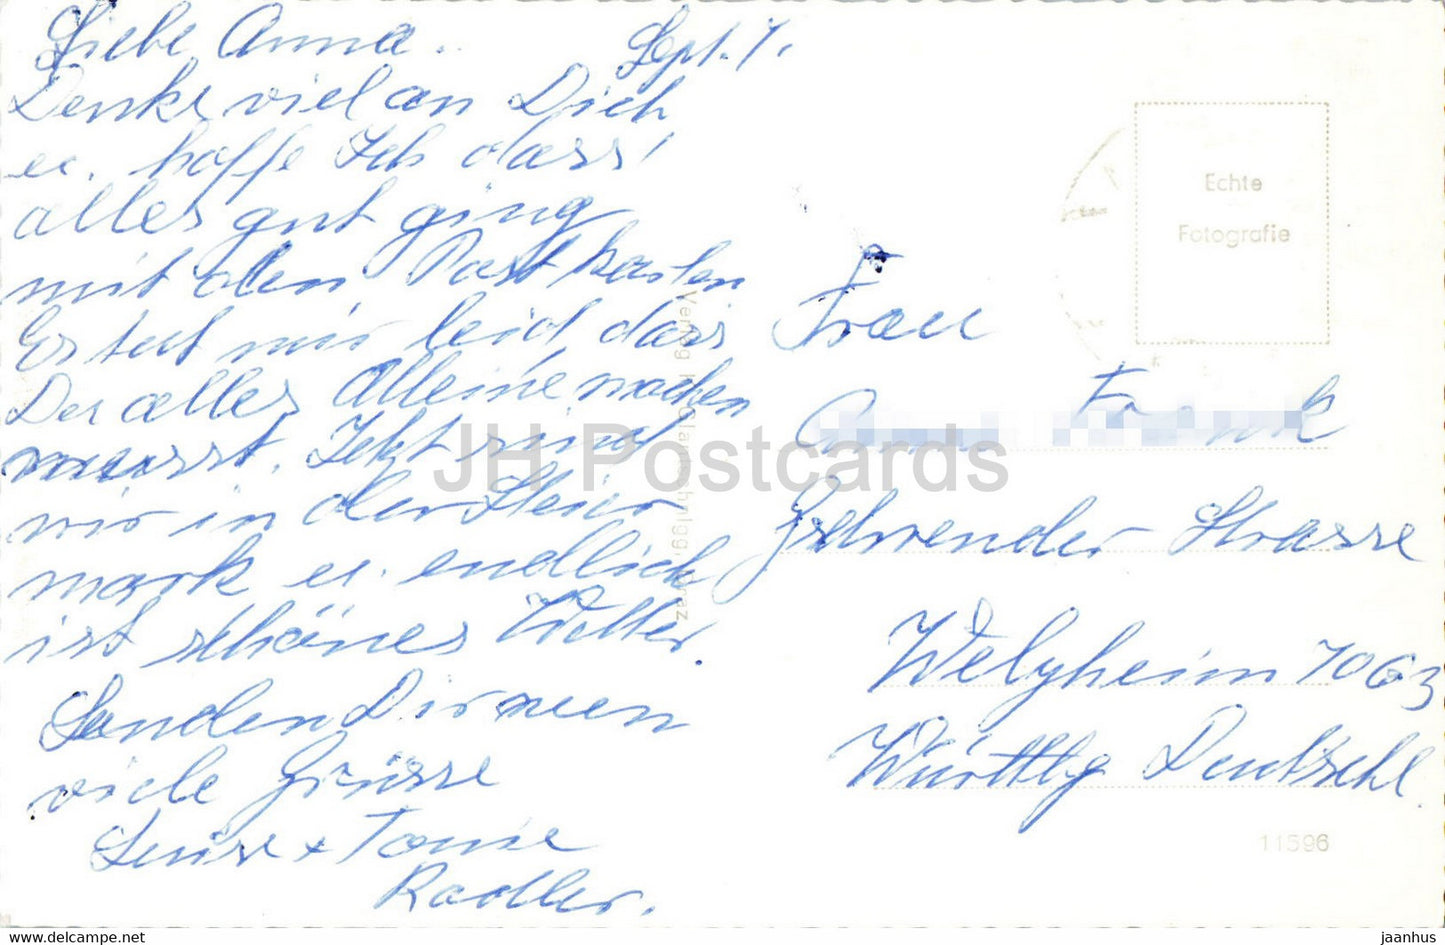 Liebe Anna. Sept. 7.
Denke viel an Dich
u. hoffe Ich dass
alles gut ging
mit den Postkarten
Es tut mir leid, dass
Du alles Alleine machen
musst. Jetzt sind
wir in der Steier
mark u. endlich
ist schönes Wetter.
Senden Dir
viele Grüsse
Luise + Tonie
Radler.
Echte
Fotografie
Frau
Anna
Strasse
Welzheim 7063
Württbg Deutschl
11596
JH Postcards
jaanhus